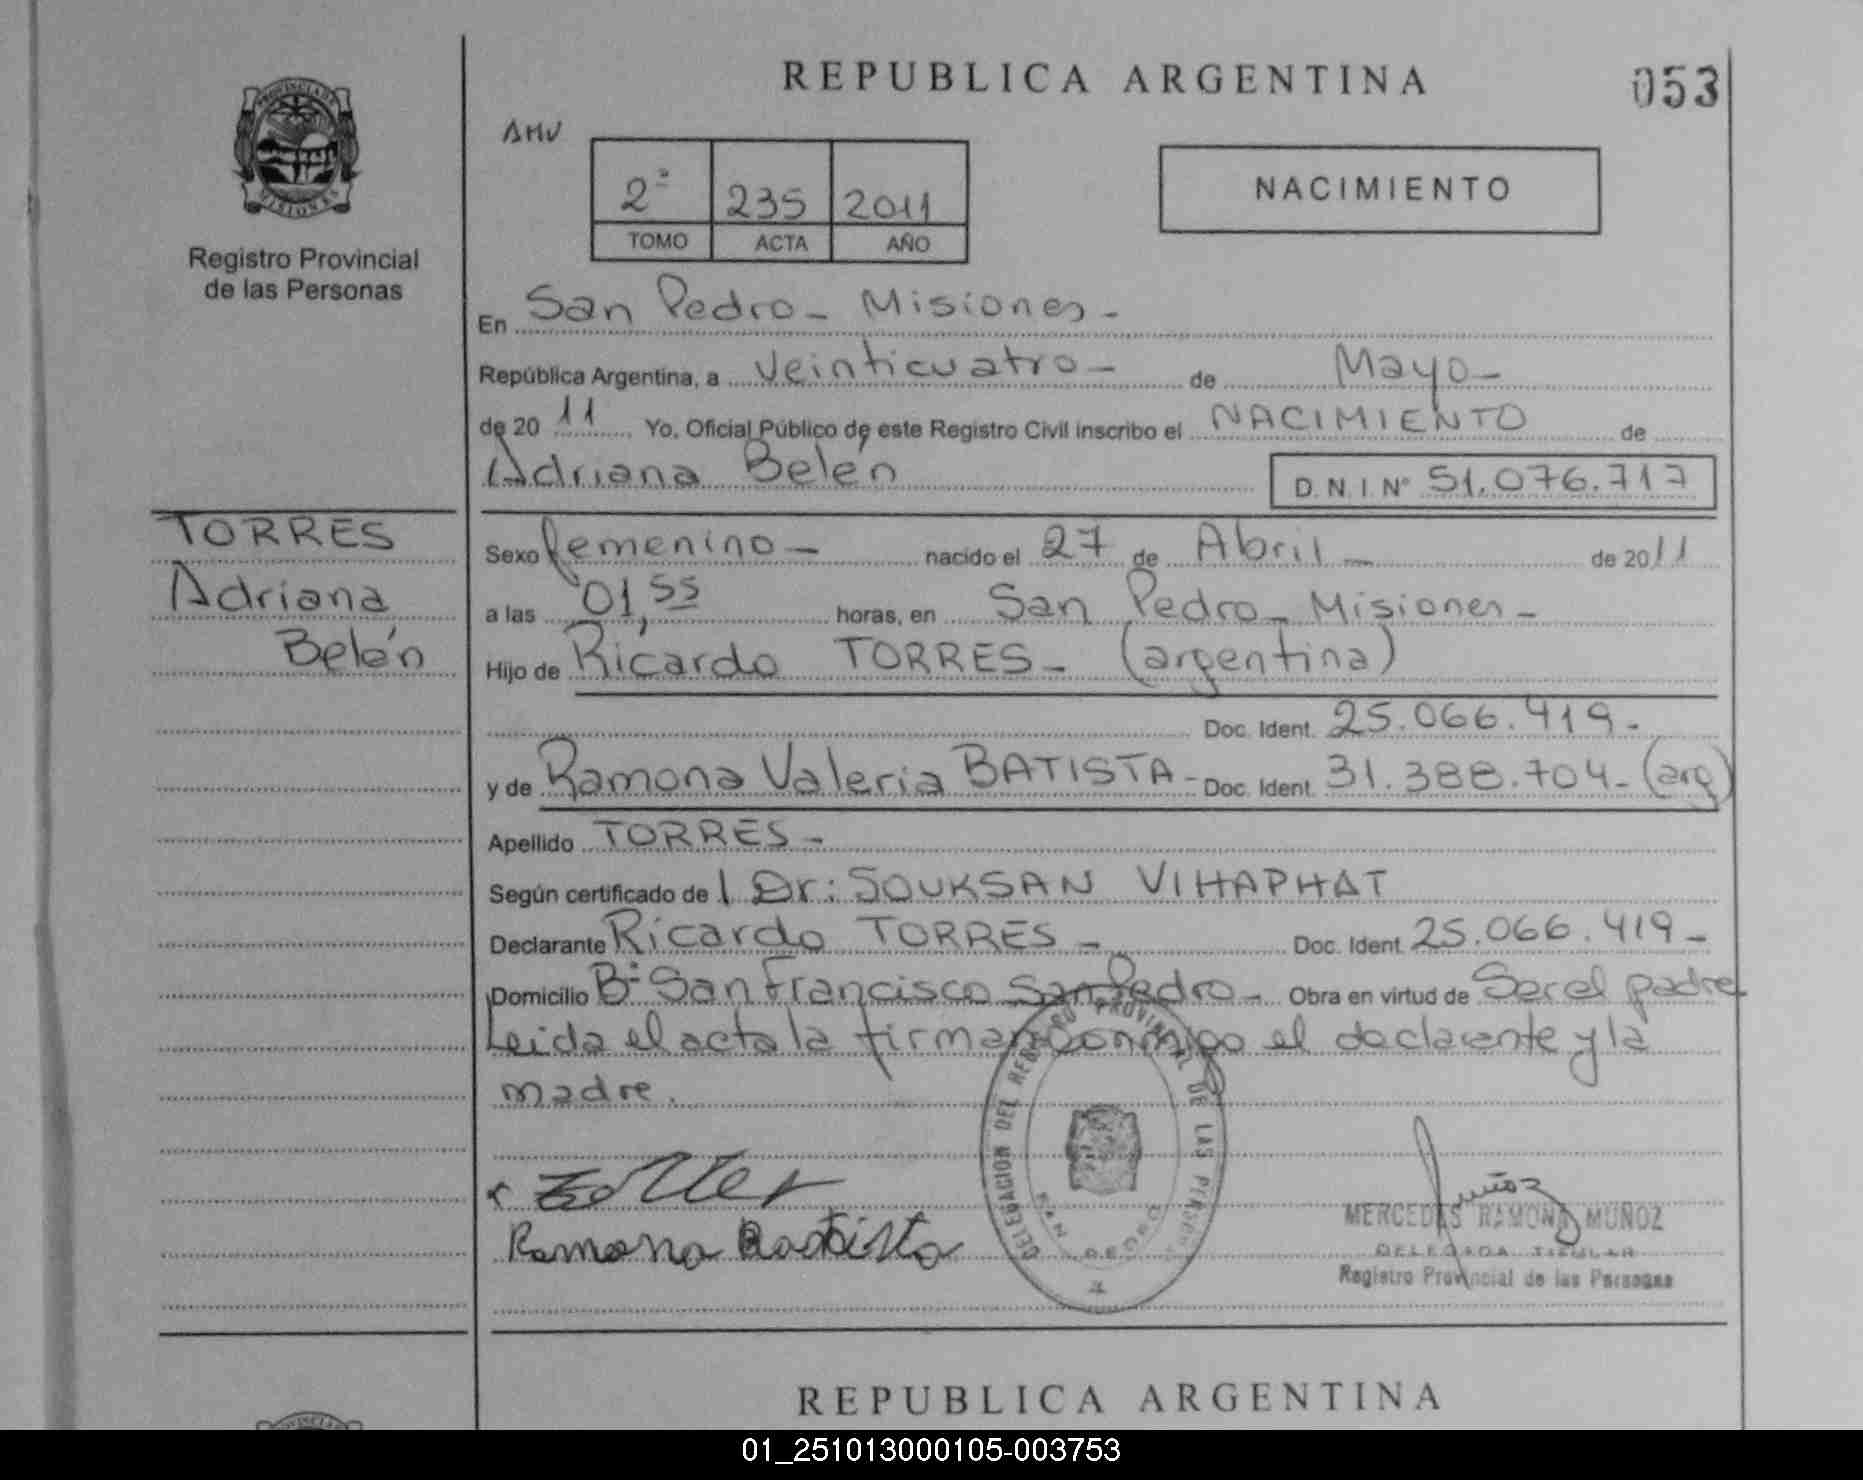 REPUBLICA ARGENTINA
053
PROVINCIA DE
MISIONES
Registro Provincial
de las Personas
AMU
2ª 235 2011
TOMO ACTA AÑO
NACIMIENTO
En San Pedro - Misiones -
República Argentina, a veinticuatro - de Mayo -
de 20 11 Yo, Oficial Público de este Registro Civil inscribo el NACIMIENTO de
Adriana Belén D.N.I. Nº 51.076.717
TORRES
Adriana
Belén
Sexo femenino - nacido el 27 de Abril - de 2011
a las 01,55 horas, en San Pedro - Misiones -
Hijo de Ricardo TORRES - (argentina)
Doc. Ident. 25.066.419 -
y de Ramona Valeria BATISTA - Doc. Ident. 31.388.704 - (arg)
Apellido TORRES -
Según certificado de l Dr: SOUKSAN VIHAPHAT
Declarante Ricardo TORRES - Doc. Ident. 25.066.419 -
Domicilio Bº San Francisco San Pedro - Obra en virtud de Ser el padre
Leida el acta la firman conmigo el declarante y la
madre.
DELEGACION DEL REGISTRO PROVINCIAL DE LAS PERSONAS
SAN PEDRO
Ramona Batista
Muñoz
MERCEDES RAMONA MUÑOZ
DELEGADA TITULAR
Registro Provincial de las Personas
REPUBLICA ARGENTINA
01_251013000105-003753